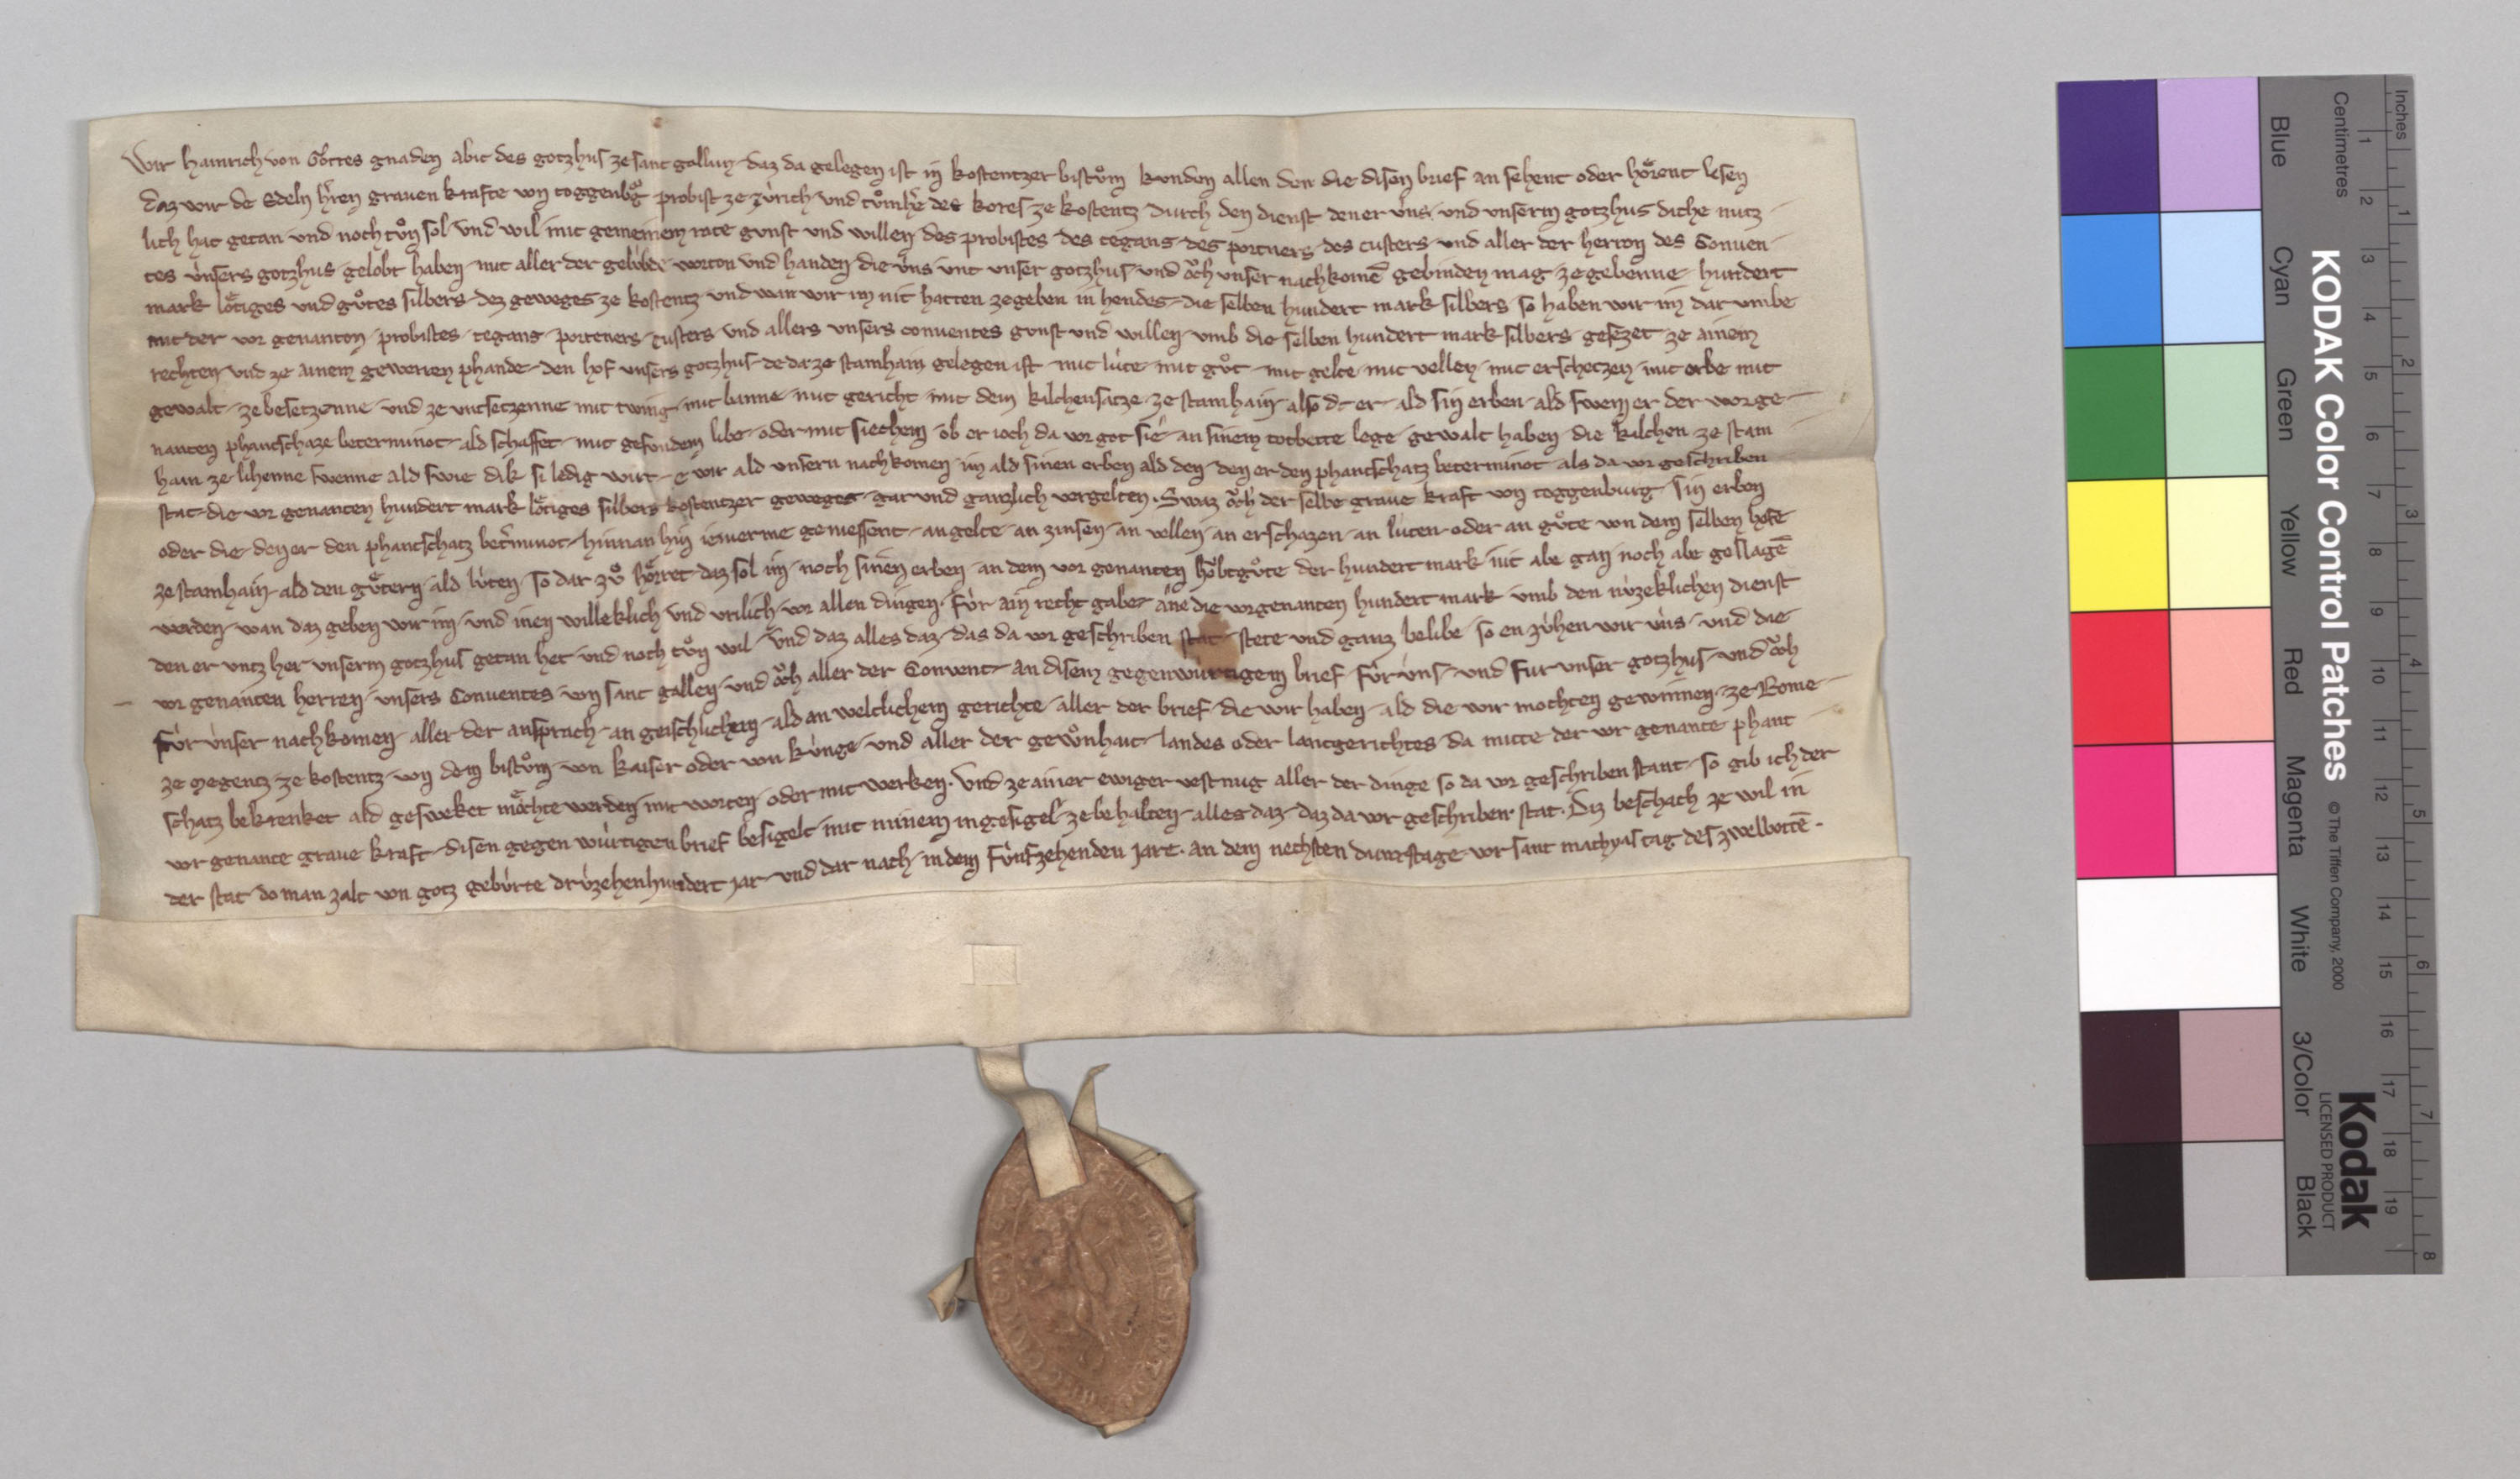 Wir Hainrich von Gottes gnaden abit des gotzhus ze sant gallun daz da gelegen ist in kostentzer bistům kunden allen den die disen brief an sehent oder hőrent lesen
daz wir de Edeln hren grauen krafte von toggenbg probist ze Zúrich und tůmhre des kores ze kostentz durch den dienst den er úns und unserm gotzhus diche nutz
lich hat getan und noch tůn sol und wil mit gemeinem rate gunst und willen des probistes des tegans des portners des custers und aller der herron des Conuen
tes únsers gotzhus gelobt haben mit aller der gelúbde worton und handen die úns unt unser gotzhus und ǒch unser nachkomē gebinden mag ze gebenne hundert
mark lőtiges und gůtes silbers dez geweges ze kostentz und wan wir im nit hatten ze geben in hendes die selben hundert mark silbers so haben wir im dar umbe
mit der vor genanton probistes tegans porteners custers und allers unsers conuentes gunst und willen umb die selben hundert mark silbers gesezet ze ainem
rechten und ze ainem gewerten phande den hof unsers gotzhus de da ze stamhain gelegen ist mit lúte mit gůt mit gelte mit vellen mit erschetzen mit erbe mit
gewalt ze besetzenne und ze entsetzenne mit twing mit banne mit gericht mit dem kilchensatze ze stamhain also dc er ald sin erben ald swem er der vorge
nanten phantschaze beterminot ald schaffet mit gesundem libe oder mit siechem ob er ioch da vor got sie an sinem totbette lege gewalt haben die kilchen ze stam
hain ze lihenne swenne ald swie dik si ledig wirt e wir ald unsern nachkomen im ald sinen erben ald den den er den phantschatz beterminot als da vor geschriben
stat die vor genanten hundert mark lőtiges silbers kostentzer geweges gar und ganzlich vergelten. Swaz ǒch der selbe graue kraft von toggenburg sin erben
oder die den er den phantschatz betminot hinnan hin iemerme geniessent an gelte an zinsen an vellen an erschazen an lúten oder an gůte von dem selben hofe
ze stamhain ald den gůtern ald lúten so dar zů hőrret daz sol im noch sinen erben an dem vor genanten hǒbtgůte der hundert mark nit abe gan noch abe geslagē
werden wan daz geben wir im und inen willeklich und vrilich vor allen dingen fúr ain recht gabe ane die vorgenanten hundert mark umb den núzeklichen dienst
den er untz her unserm gotzhus getan het und noch tůn wil und daz alles daz das da vor geschriben stat stete und ganz belibe so en zúhen wir úns und die
vor genanten herren unsers Conuentes von sant gallen und ǒch aller der Convent an disem gegenwurtigem brief fúr úns und fur unser gotzhus und ǒch
fúr únser nachkomen aller der ansprach an geischlichem ald an weltlichem gerichte aller der brief die wir haben ald die wir mochten gewinnen ze Rome
ze Megentz ze kostentz von dem bistům von kaiser oder von kúnge und aller der gewonhait landes oder lantgerichtes da mitte der vor genante phant
schatz bekrenket ald gesweket mőchte werden mit worten oder mit werken. Und ze ainer ewiger vestnug aller der dinge so da vor geschriben stant so gib ich der
vor genante graue kraft disen gegen wúrtigen brief besigelt mit minem ingesigel ze behalten alles daz daz da vor geschriben stat. Diz beschach ze wil in
der stat do man zalt von gotz gebúrte drúzehenhundert jar und dar nach in dem fúnfzehenden jare. an dem nechsten dunrstage vor sant mathyas tag des zwelbottē.
Inches
Centimetres
KODAK Color Control Patches
© The Tiffen Company, 2000
Kodak
LICENSED PRODUCT
Blue
Cyan
Green
Yellow
Red
Magenta
White
3/Color
Black
1 2 3 4 5 6 7 8 9 10 11 12 13 14 15 16 17 18 19
1 2 3 4 5 6 7 8